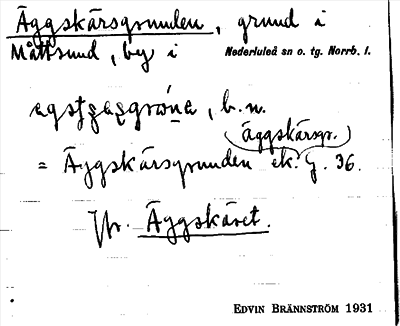 Äggskärsgrunden, grund i
Måttsund, by i Nederluleå sn o. tg. Norrb. l.
b. n.
(äggskärsgr.)
= Äggskärsgrunden ek. G. 36.
Jfr. Äggskäret.
EDVIN BRÄNNSTRÖM 1931